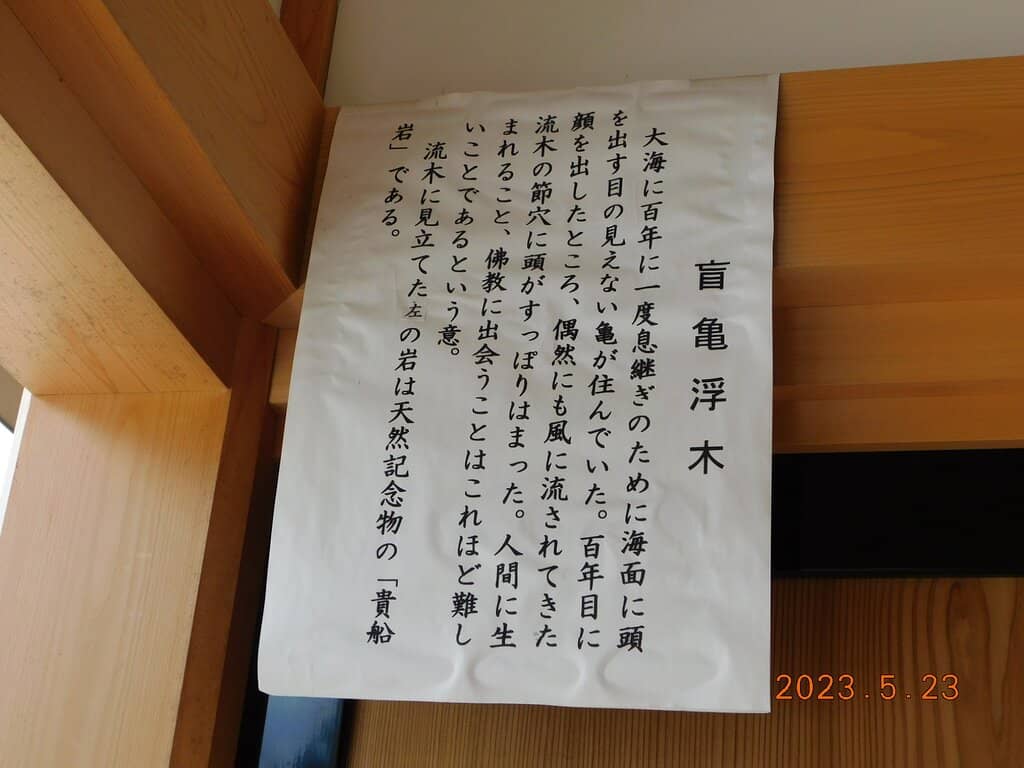 盲亀浮木
大海に百年に一度息継ぎのために海面に頭
を出す目の見えない亀が住んでいた。百年目に
顔を出したところ、偶然にも風に流されてきた
流木の節穴に頭がすっぽりはまった。人間に生
まれること、佛教に出会うことはこれほど難し
いことであるという意。
流木に見立てた左の岩は天然記念物の「貴船
岩」である。
2023.5.23